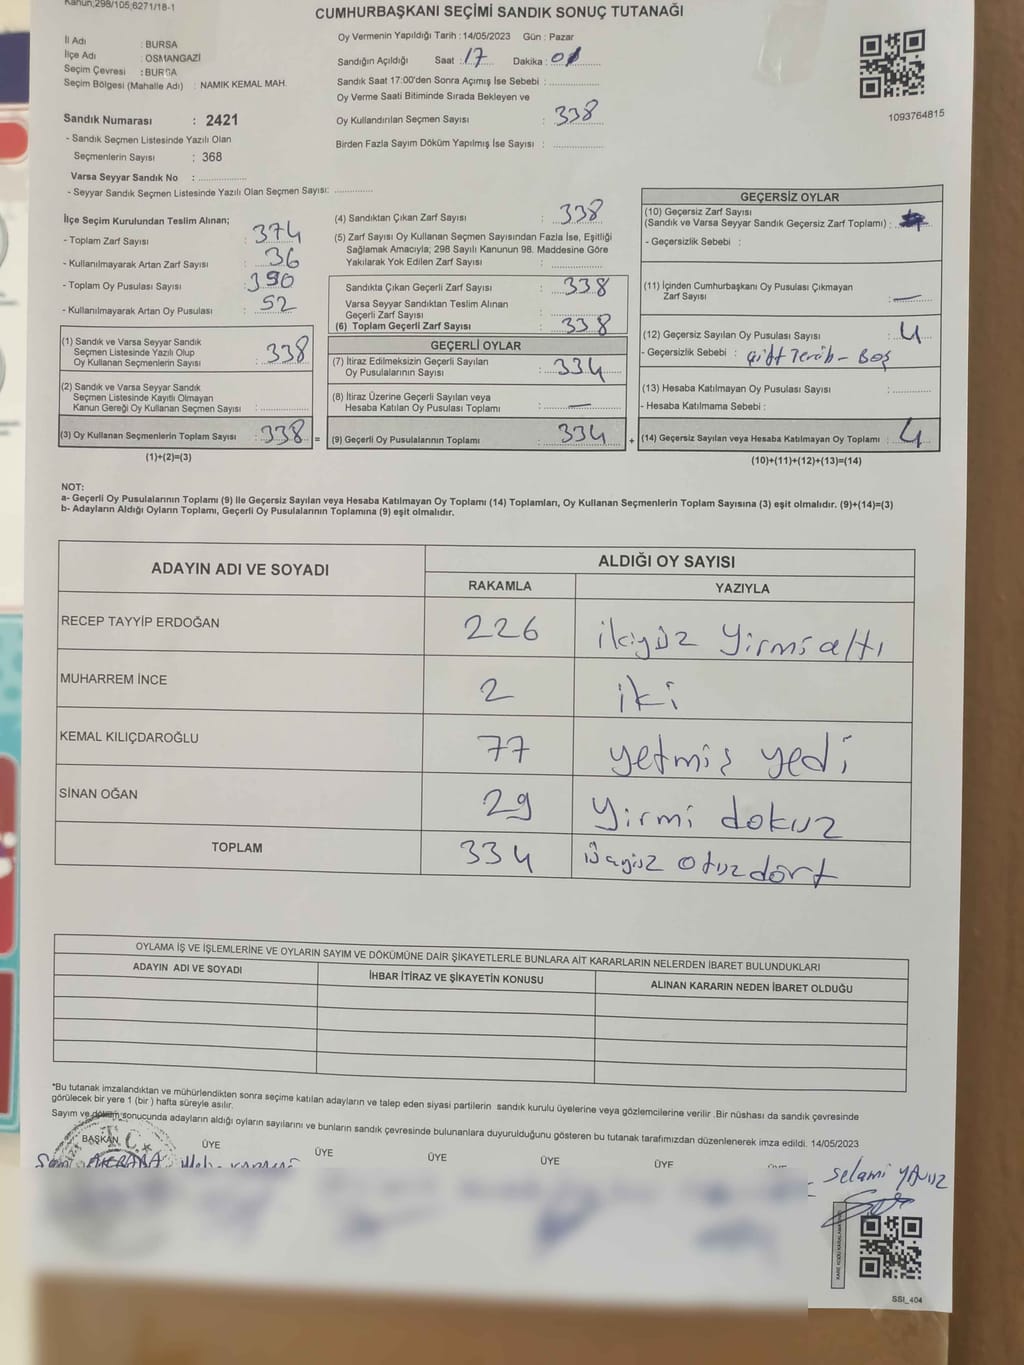 Kanun;298/105;6271/18-1
CUMHURBAŞKANI SEÇİMİ SANDIK SONUÇ TUTANAĞI
İl Adı : BURSA
İlçe Adı : OSMANGAZİ
Seçim Çevresi : BURSA
Seçim Bölgesi (Mahalle Adı) : NAMIK KEMAL MAH.
Oy Vermenin Yapıldığı Tarih : 14/05/2023 Gün : Pazar
Sandığın Açıldığı Saat : 17 Dakika :
Sandık Saat 17:00'den Sonra Açımış İse Sebebi :
Oy Verme Saati Bitiminde Sırada Bekleyen ve
Oy Kullandırılan Seçmen Sayısı : 338
Birden Fazla Sayım Döküm Yapılmış İse Sayısı :
1093764815
Sandık Numarası : 2421
- Sandık Seçmen Listesinde Yazılı Olan
Seçmenlerin Sayısı : 368
Varsa Seyyar Sandık No :
- Seyyar Sandık Seçmen Listesinde Yazılı Olan Seçmen Sayısı:
İlçe Seçim Kurulundan Teslim Alınan;
- Toplam Zarf Sayısı : 374
- Kullanılmayarak Artan Zarf Sayısı : 36
- Toplam Oy Pusulası Sayısı : 390
- Kullanılmayarak Artan Oy Pusulası : 52
(1) Sandık ve Varsa Seyyar Sandık
Seçmen Listesinde Yazılı Olup
Oy Kullanan Seçmenlerin Sayısı : 338
(2) Sandık ve Varsa Seyyar Sandık
Seçmen Listesinde Kayıtlı Olmayan
Kanun Gereği Oy Kullanan Seçmen Sayısı :
(3) Oy Kullanan Seçmenlerin Toplam Sayısı : 338 =
(1)+(2)=(3)
(4) Sandıktan Çıkan Zarf Sayısı : 338
(5) Zarf Sayısı Oy Kullanan Seçmen Sayısından Fazla İse, Eşitliği
Sağlamak Amacıyla; 298 Sayılı Kanunun 98. Maddesine Göre
Yakılarak Yok Edilen Zarf Sayısı :
Sandıkta Çıkan Geçerli Zarf Sayısı : 338
Varsa Seyyar Sandıktan Teslim Alınan
Geçerli Zarf Sayısı :
(6) Toplam Geçerli Zarf Sayısı : 338
GEÇERLİ OYLAR
(7) İtiraz Edilmeksizin Geçerli Sayılan
Oy Pusulalarının Sayısı : 334
(8) İtiraz Üzerine Geçerli Sayılan veya
Hesaba Katılan Oy Pusulası Toplamı : —
(9) Geçerli Oy Pusulalarının Toplamı : 334 +
GEÇERSİZ OYLAR
(10) Geçersiz Zarf Sayısı
(Sandık ve Varsa Seyyar Sandık Geçersiz Zarf Toplamı) :
- Geçersizlik Sebebi :
(11) İçinden Cumhurbaşkanı Oy Pusulası Çıkmayan
Zarf Sayısı : —
(12) Geçersiz Sayılan Oy Pusulası Sayısı : 4
- Geçersizlik Sebebi : Çift Tercih - Boş
(13) Hesaba Katılmayan Oy Pusulası Sayısı :
- Hesaba Katılmama Sebebi :
(14) Geçersiz Sayılan veya Hesaba Katılmayan Oy Toplamı : 4
(10)+(11)+(12)+(13)=(14)
NOT:
a- Geçerli Oy Pusulalarının Toplamı (9) İle Geçersiz Sayılan veya Hesaba Katılmayan Oy Toplamı (14) Toplamları, Oy Kullanan Seçmenlerin Toplam Sayısına (3) eşit olmalıdır. (9)+(14)=(3)
b- Adayların Aldığı Oyların Toplamı, Geçerli Oy Pusulalarının Toplamına (9) eşit olmalıdır.
ADAYIN ADI VE SOYADI ALDIĞI OY SAYISI
RAKAMLA YAZIYLA
RECEP TAYYİP ERDOĞAN 226 ikiyüz Yirmialtı
MUHARREM İNCE 2 iki
KEMAL KILIÇDAROĞLU 77 yetmiş yedi
SİNAN OĞAN 29 Yirmi dokuz
TOPLAM 334 üçyüz otuzdört
OYLAMA İŞ VE İŞLEMLERİNE VE OYLARIN SAYIM VE DÖKÜMÜNE DAİR ŞİKAYETLERLE BUNLARA AİT KARARLARIN NELERDEN İBARET BULUNDUKLARI
ADAYIN ADI VE SOYADI İHBAR İTİRAZ VE ŞİKAYETİN KONUSU ALINAN KARARIN NEDEN İBARET OLDUĞU
*Bu tutanak imzalandıktan ve mühürlendikten sonra seçime katılan adayların ve talep eden siyasi partilerin sandık kurulu üyelerine veya gözlemcilerine verilir .Bir nüshası da sandık çevresinde
görülecek bir yere 1 (bir ) hafta süreyle asılır.
Sayım ve döküm sonucunda adayların aldığı oyların sayılarını ve bunların sandık çevresinde bulunanlara duyurulduğunu gösteren bu tutanak tarafımızdan düzenlenerek imza edildi. 14/05/2023
BAŞKAN ÜYE ÜYE ÜYE ÜYE ÜYE
Selami YAVUZ
SSİ_404